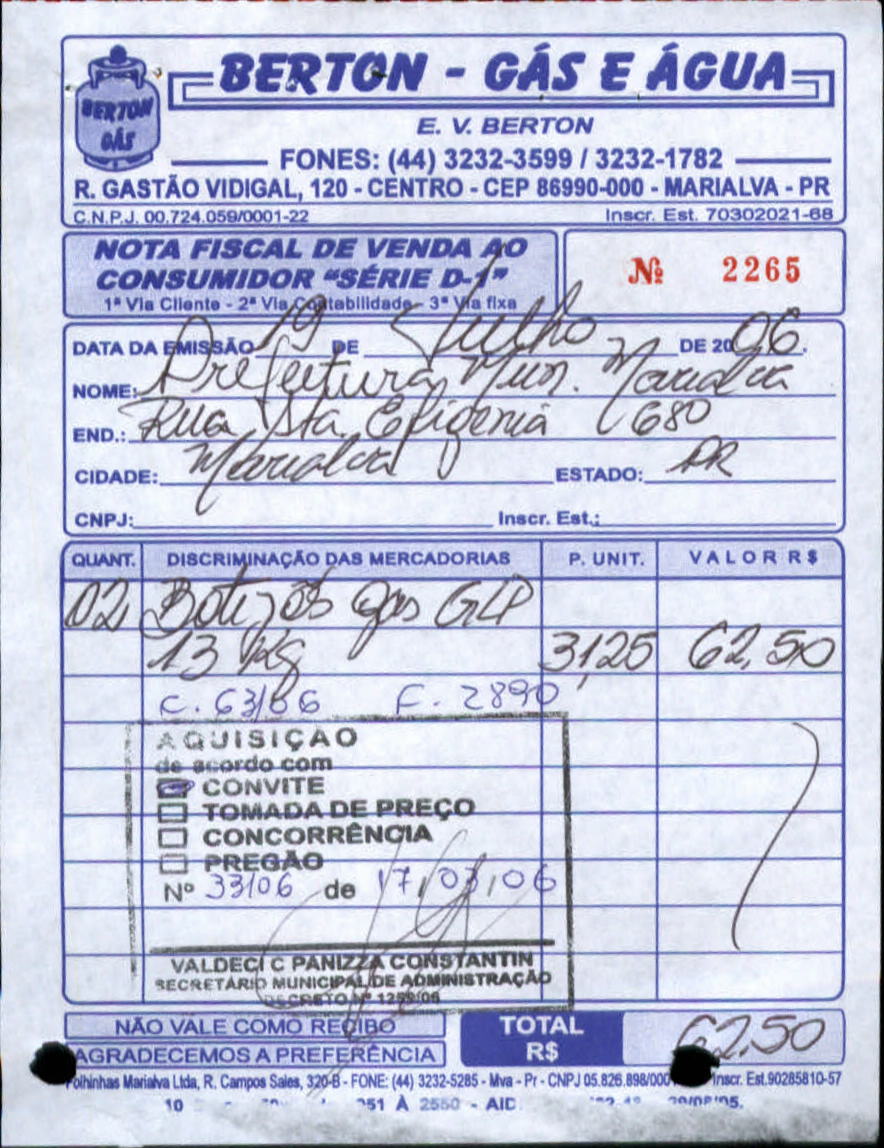 BERTON - GÁS E ÁGUA
BERTON GÁS
E. V. BERTON
FONES: (44) 3232-3599 / 3232-1782
R. GASTÃO VIDIGAL, 120 - CENTRO - CEP 86990-000 - MARIALVA - PR
C.N.P.J. 00.724.059/0001-22 Inscr. Est. 70302021-68
NOTA FISCAL DE VENDA AO
CONSUMIDOR "SÉRIE D-1"
1ª Via Cliente - 2ª Via Contabilidade - 3ª Via fixa
Nº 2265
DATA DA EMISSÃO 19 DE Julho DE 2006.
NOME: Prefeitura Mun. Marialva
END.: Rua Sta Efigenia 680
CIDADE: Marialva ESTADO: PR
CNPJ: Inscr. Est.:
QUANT. DISCRIMINAÇÃO DAS MERCADORIAS P. UNIT. VALOR R$
02 Botijões gas GLP
13 Kg 31,25 62,50
C. 63/06 F. 2890
AQUISIÇÃO
de acordo com
CONVITE
TOMADA DE PREÇO
CONCORRÊNCIA
PREGÃO
Nº 33106 de 17/03/06
VALDECI C PANIZZA CONSTANTIN
SECRETÁRIO MUNICIPAL DE ADMINISTRAÇÃO
DECRETO Nº 1259/06
NÃO VALE COMO RECIBO
AGRADECEMOS A PREFERÊNCIA
TOTAL R$ 62,50
Folhinhas Marialva Ltda, R. Campos Sales, 320-B - FONE: (44) 3232-5285 - Mva - Pr - CNPJ 05.826.898/000 Inscr. Est.90285810-57
10 251 À 2550 - AID